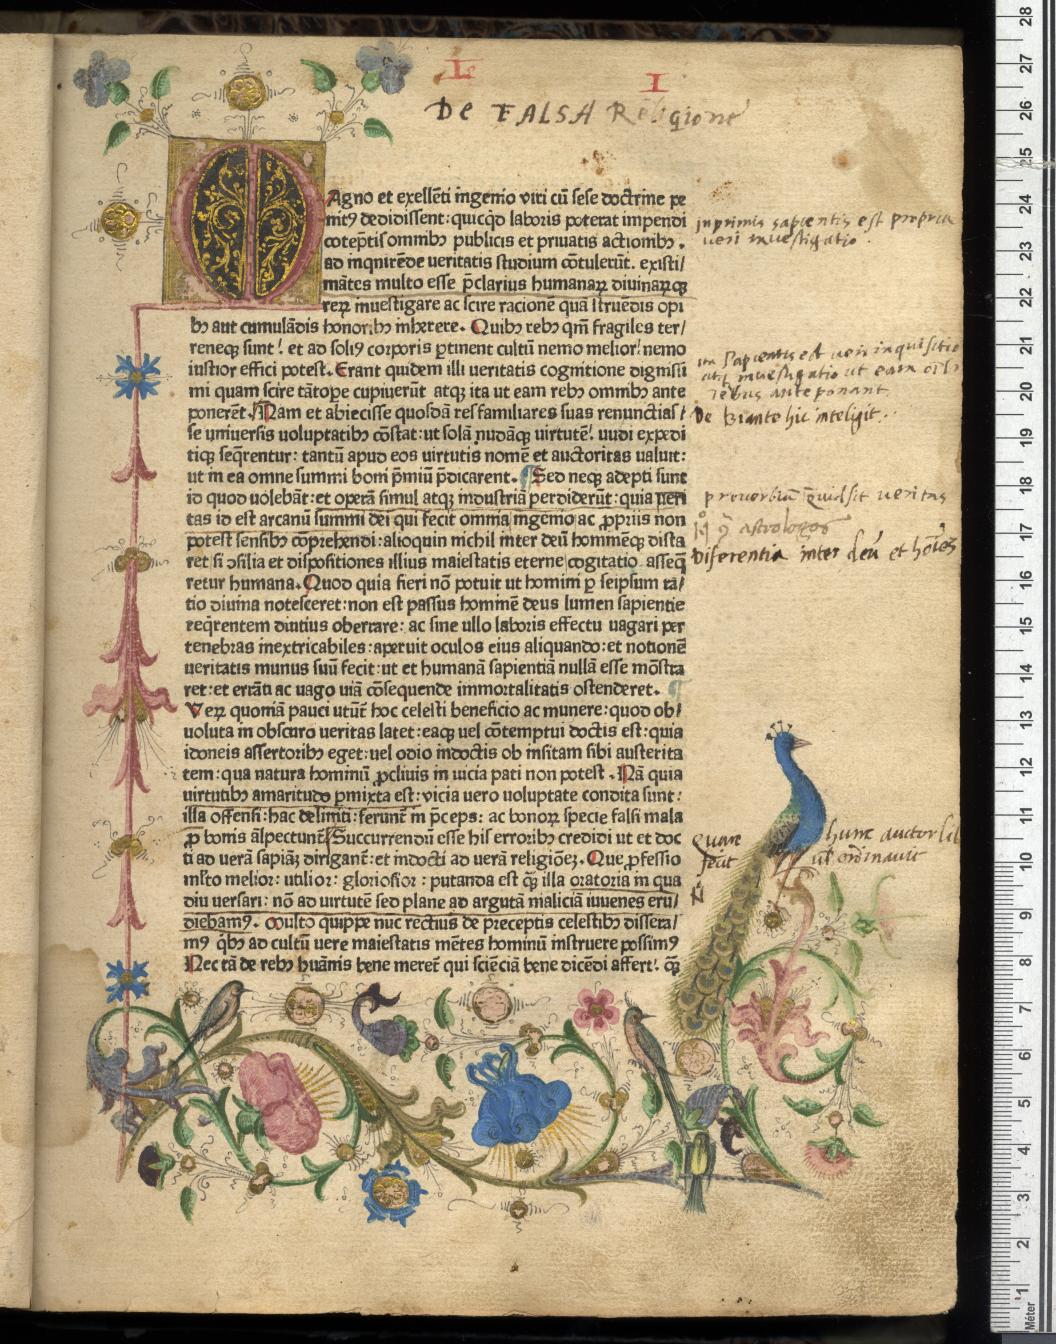 L I
De FALSA Religione
MAgno et exellēti ingenio viri cū sese doctrine pe
nitꝰ dedidissent: quicqd laboris poterat impendi
cōtēptis omnibꝫ publicis et priuatis actionibꝫ.
ad inquirēde veritatis studium cōtulerūt. existi/
mātes multo esse p̄clarius humanaꝝ diuinaꝝqꝫ
reꝝ inuestigare ac scire racionē quā struēdis opi
bꝫ aut cumulādis honoribꝫ inherere. Quibꝫ rebꝫ qm̄ fragiles ter/
reneqꝫ sunt! et ad soliꝰ corporis ꝑtinent cultū nemo melior! nemo
iustior effici potest. Erant quidem illi veritatis cognitione dignissi
mi quam scire tātope cupiuerūt atqꝫ ita ut eam rebꝫ omnibꝫ ante
ponerēt. Nam et abiecisse quosdā resfamiliares suas renunctias/
se uniuersis uoluptatibꝫ cōstat: ut solā nudāqꝫ uirtutē! nudi expedi
tiqꝫ seqrentur: tantū apud eos uirtutis nomē et auctoritas ualuit:
ut in ea omne summi boni p̄miū p̄dicarent. ¶ Sed neqꝫ adepti sunt
id quod uolebāt: et operā simul atqꝫ industriā perdiderūt: quia ueri
tas id est arcanū summi dei qui fecit omnia ingenio ac ꝓpriis non
potest sensibꝫ cōprehendi: alioquin nichil inter deū hominēqꝫ dista
ret si ↄsilia et dispositiones illius maiestatis eterne cogitatio asseq̄
retur humana. Quod quia fieri nō potuit ut homini ꝑ seipsum ra/
tio diuina notesceret: non est passus hominē deus lumen sapientie
reqrentem diutius oberrare: ac sine ullo laboris effectu uagari per
tenebras inextricabiles: aperuit oculos eius aliquando: et notionē
ueritatis munus suū fecit: ut et humanā sapientiā nullā esse mōstra
ret: et errāti ac uago uiā cōsequende immortalitatis ostenderet. ¶
Veꝝ quoniā pauci utūt̄ hoc celesti beneficio ac munere: quod ob/
uoluta in obscuro ueritas latet: eaqꝫ uel cōtemptui doctis est: quia
idoneis assertoribꝫ eget: uel odio indoctis ob insitam sibi austerita
tem: qua natura hominū ꝓcliuis in uicia pati non potest. Nā quia
uirtutibꝫ amaritudo ꝑmixta est: vicia uero uoluptate condita sunt:
illa offensi: hac deliniti: ferunt̄ in p̄ceps: ac bonoꝝ specie falsi mala
ꝓ bonis āplectunt̄ Succurrendū esse his erroribꝫ credidi ut et doc
ti ad uerā sapiāꝫ dirigant̄: et indocti ad uerā religiōeꝫ. Que ꝓfessio
mlto melior: utilior: gloriosior: putanda est qꝫ illa oratoria in qua
diu uersati: nō ad uirtutē sed plane ad argutā maliciā iuuenes eru/
diebamꝰ. Multo quippe nūc rectius de preceptis celestibꝫ dissera/
mꝰ qbꝫ ad cultū uere maiestatis mētes hominū instruere possimꝰ
Nec tā de rebꝫ huānis bene meret̄ qui sciēciā bene dicēdi affert! qꝫ
inprimis sapientis est propria
veri investigatio.
ita Sapientis est veri inquisitio
atqꝫ investigatio ut eam
rebus anteponant
De Biante hic inteligit.
proverbiū quid sit veritas
astrologos
Diferentia inter deū et hoīes
quare hunc auctor
fecit ut ordinavit
28
27
26
25
24
23
22
21
20
19
18
17
16
15
14
13
12
11
10
9
8
7
6
5
4
3
2
1
Méter